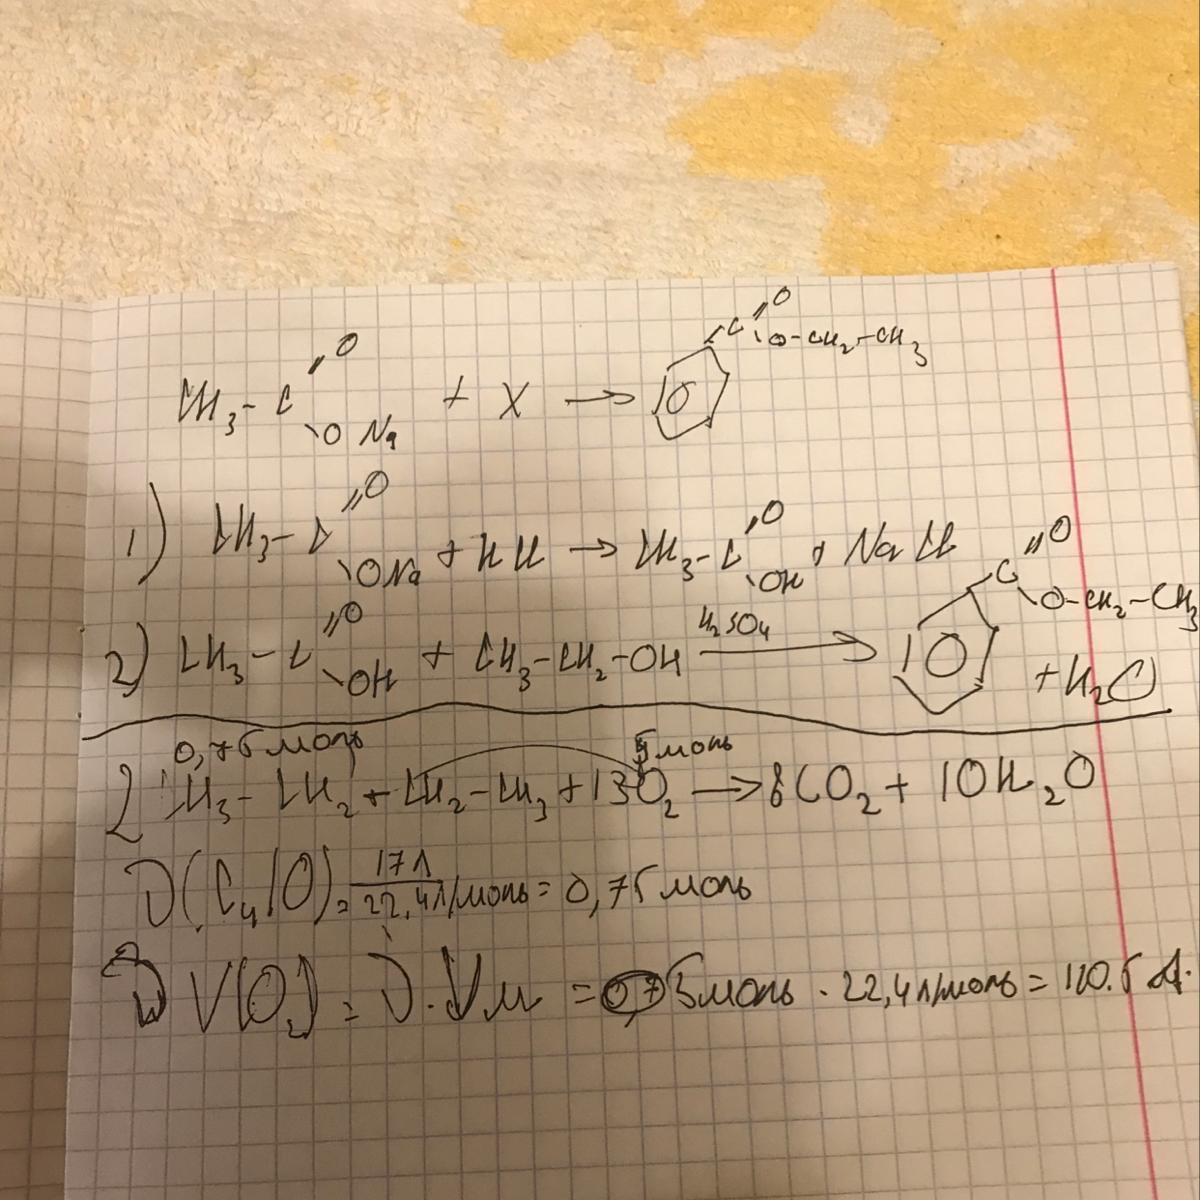 CH3-C=O\ONa + X → C=O\O-CH2-CH3
1) CH3-C=O\ONa + HCl → CH3-C=O\OH + NaCl
2) CH3-C=O\OH + CH3-CH2-OH H2SO4 → C=O\O-CH2-CH3 + H2O
0,75 моль 5моль
2 CH3-CH2+CH2-CH3+13O2 → 8CO2+ 10H2O
ν(C4 10)= 17л/22,4л/моль = 0,75 моль
V(O2) = ν·Vм = 5моль · 22,4л/моль = 110.5 л.